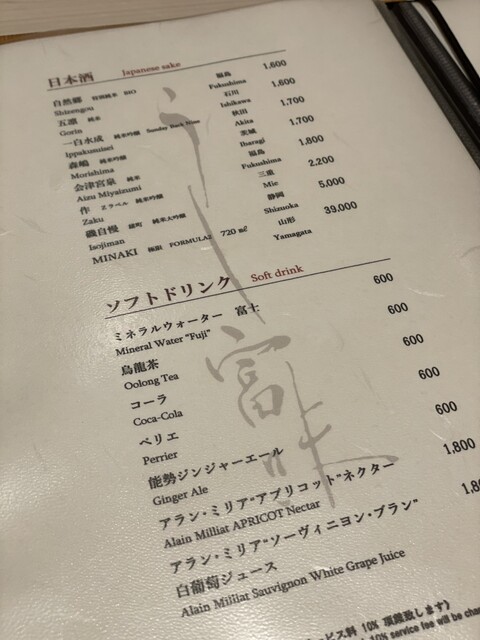 日本酒 Japanese sake
自然郷 特別純米 BIO 福島 1,600
Shizengou Fukushima
五凛 純米 石川 1,600
Gorin Ishikawa
一白水成 純米吟醸 秋田 1,700
Ippakusuisei Akita
森嶋 純米吟醸 茨城 1,700
Morishima Ibaragi
会津宮泉 純米 福島 1,800
Aizu Miyaizumi Fukushima
作 Zラベル 純米吟醸 三重 2,200
Zaku Mie
磯自慢 雄町 純米大吟醸 静岡 5,000
Isojiman Shizuoka
MINAKI FORMULA2 720 ㎖ 山形 39,000
Yamagata
ソフトドリンク Soft drink
ミネラルウォーター 富士 600
Mineral Water "Fuji"
烏龍茶 600
Oolong Tea
コーラ 600
Coca-Cola
ペリエ 600
Perrier
能勢ジンジャーエール 600
Ginger Ale
アラン・ミリア"アプリコット"ネクター 1,800
Alain Milliat APRICOT Nectar
アラン・ミリア"ソーヴィニヨン・ブラン" 1,8
白葡萄ジュース
Alain Milliat Sauvignon White Grape Juice
ービス料 10% 頂戴致します)
10% service fee will be cha
富味